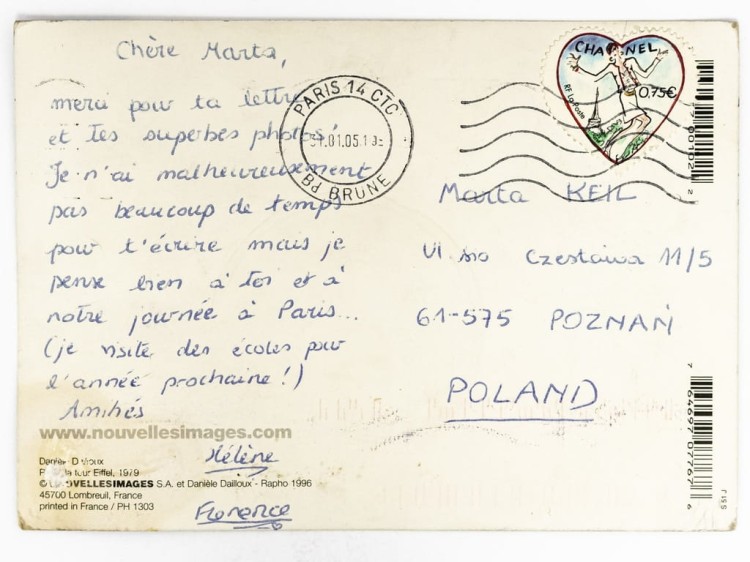 Chère Marta,
merci pour ta lettre
et tes superbes photos!
Je n'ai malheureusement
pas beaucoup de temps
pour t'écrire mais je
pense bien à toi et à
notre journée à Paris...
(je visite des écoles pour
l'année prochaine!)
Amitiés
Hélène
Florence
www.nouvellesimages.com
la tour Eiffel, 1979
S.A. et Danièle Dailloux - Rapho 1996
45700 Lombreuil, France
printed in France / PH 1303
PARIS 14 CTC
01.05
Bd BRUNE
CHANEL
0,75€
RF La Poste
Marta KEIL
Ul.
11/5
61-575 POZNAŃ
POLAND